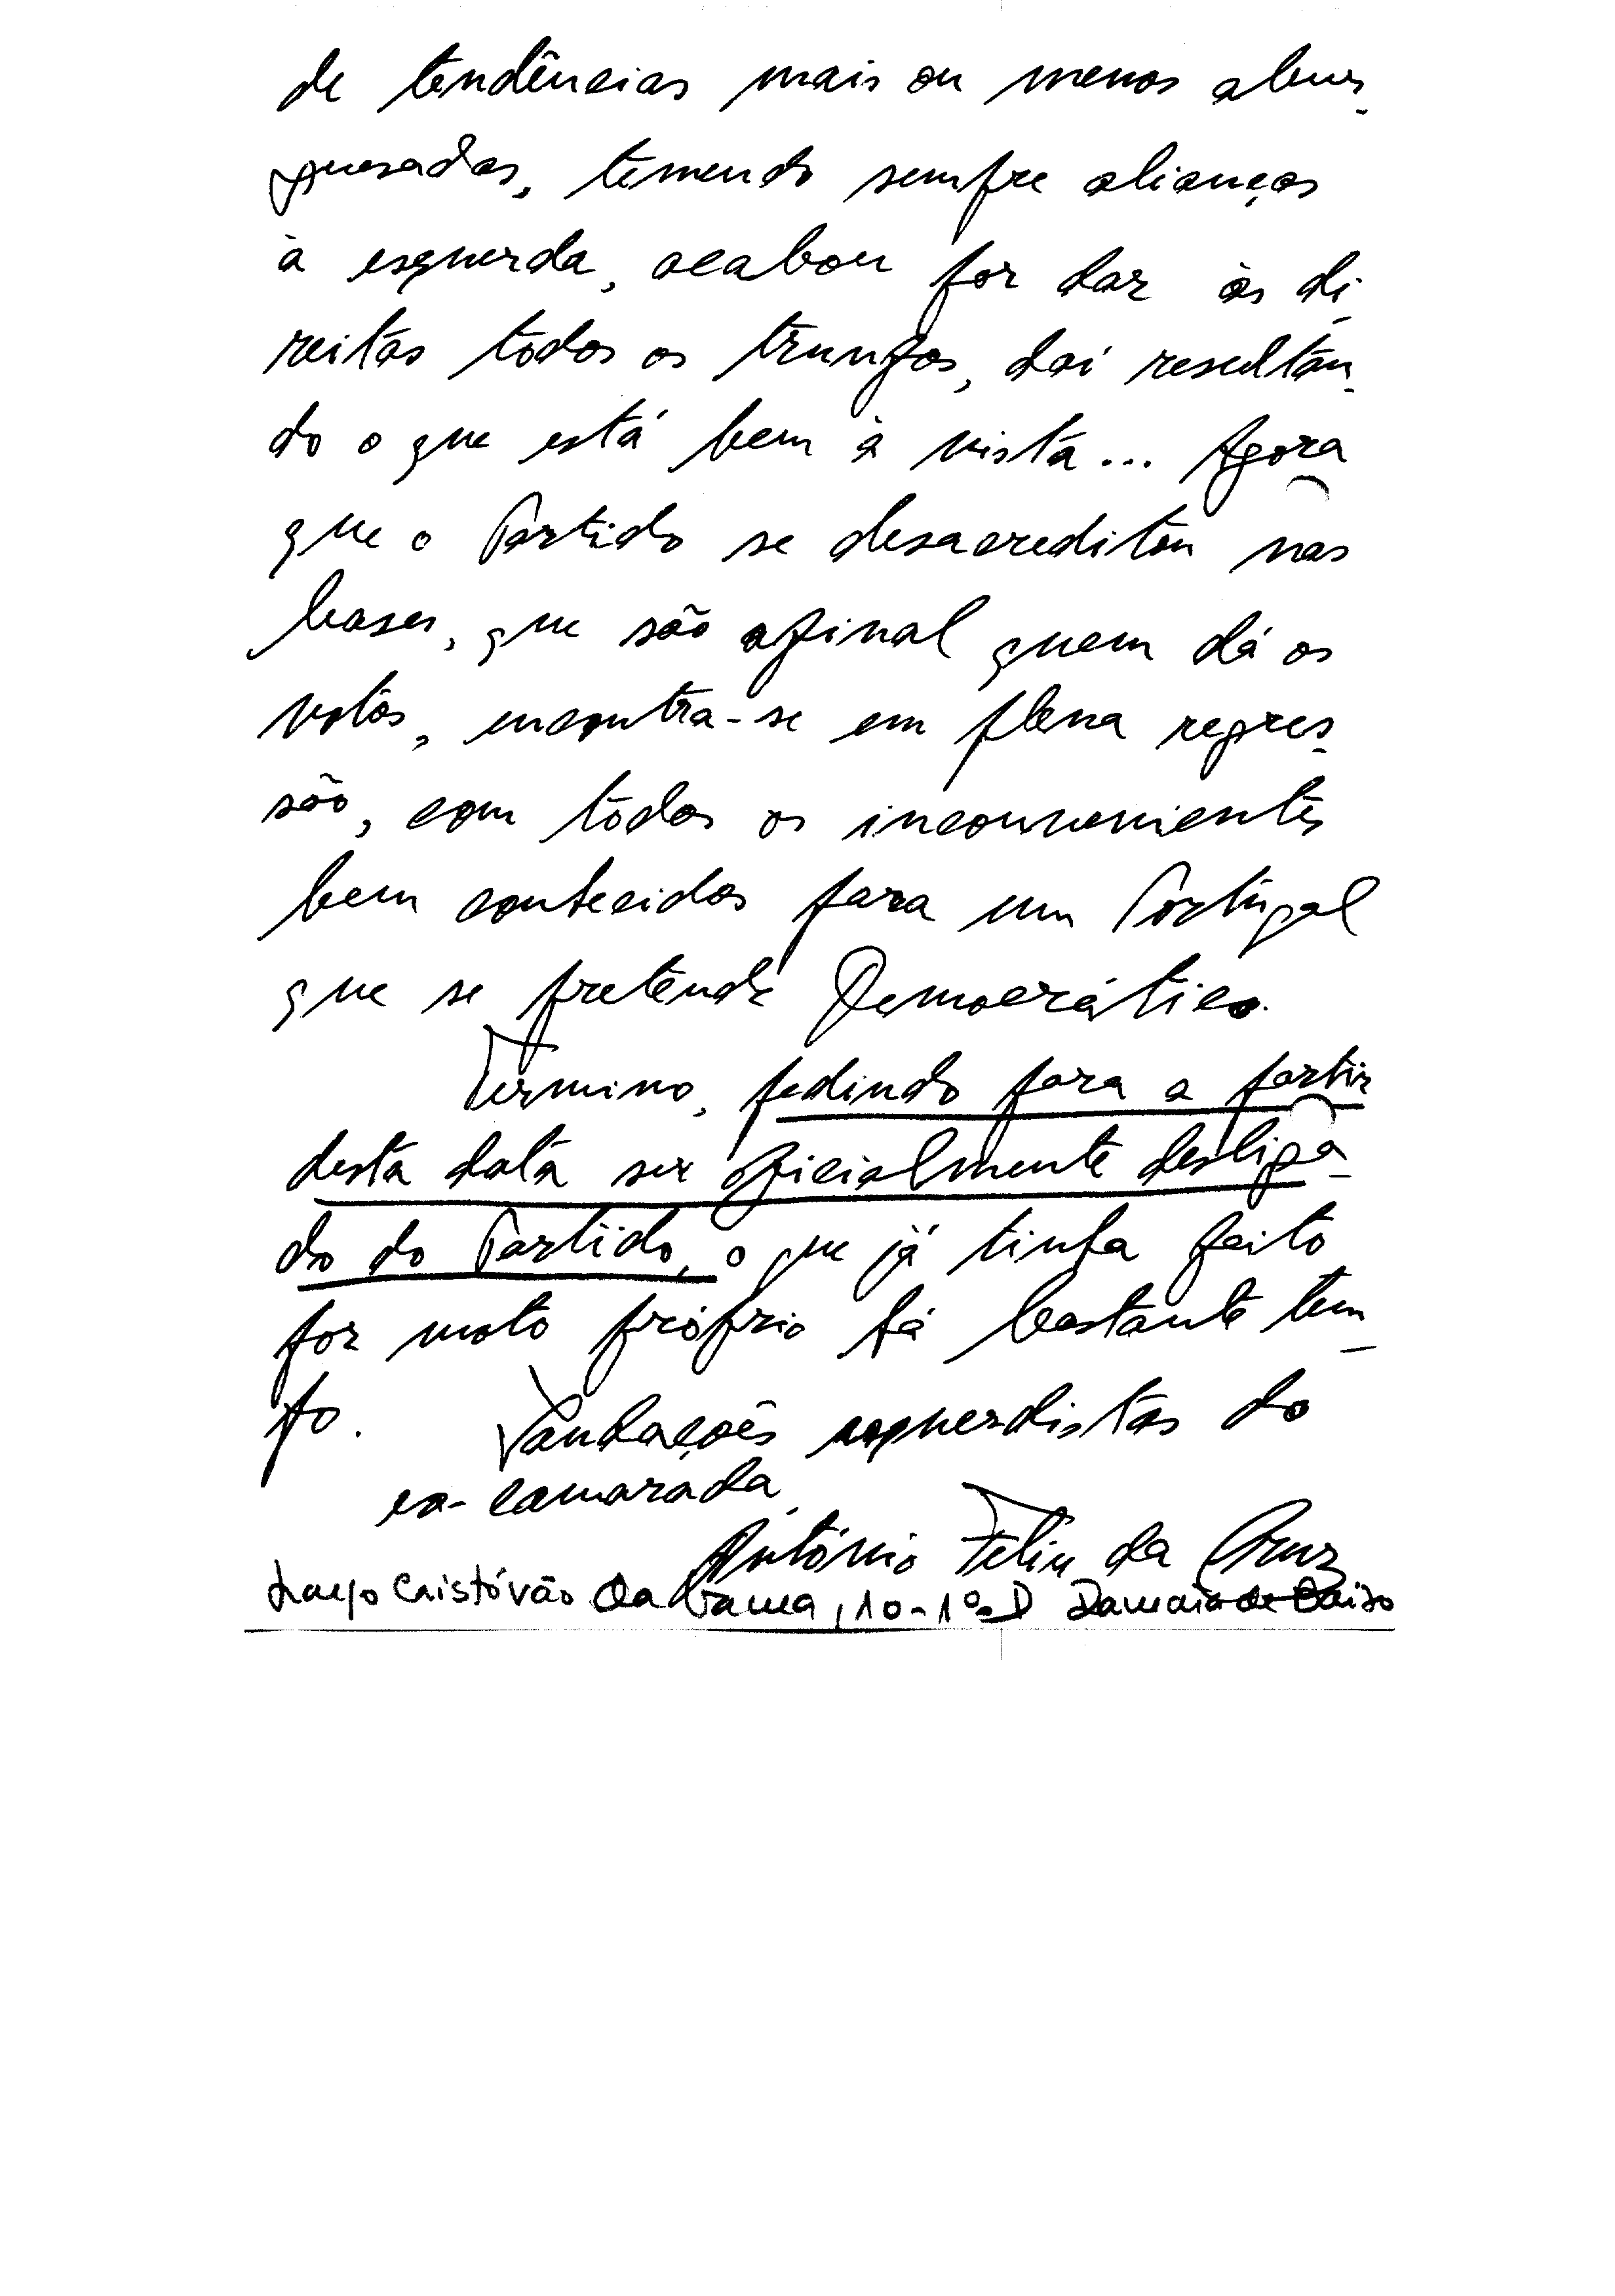 de tendências mais ou menos abur-
guesadas, temendo sempre alianças
à esquerda, acabou por dar às di-
reitas todos os trunfos, daí resultan-
do o que está bem à vista... Agora
que o Partido se desacreditou nas
bases, que são afinal quem dá os
votos, encontra-se em plena regres-
são, com todos os inconvenientes
bem conhecidos para um Portugal
que se pretende Democrático.
Termino, pedindo para a partir
desta data ser oficialmente desliga-
do do Partido, o que já tinha feito
por moto próprio há bastante tem-
po. Saudações esquerdistas do
ex-camarada,
António Felix da Cruz
Largo Cristóvão Da Gama, 10-1º-D Damaia de Baixo